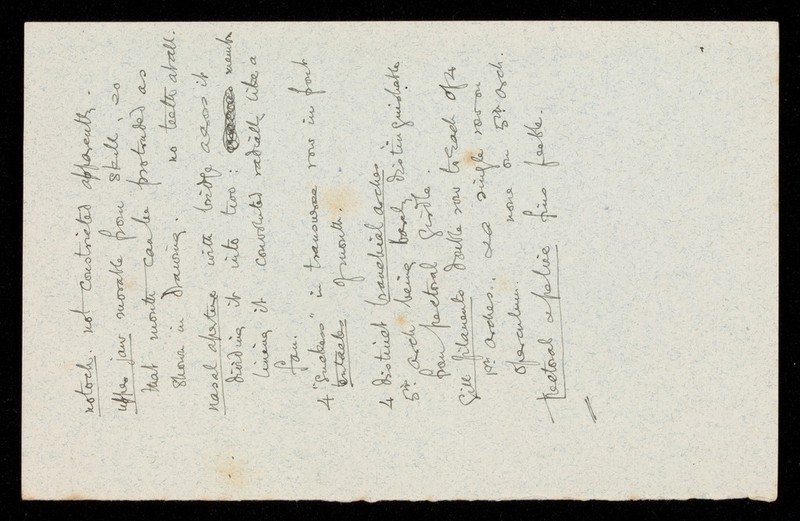 notoch. not constricted apparently.
upper jaw movable from skull, so
that mouth can be protruded as
shown in drawing. no teeth at all.
nasal aperture with bridge across it
dividing it into two: membr
lining it convoluted radially like a
fan.
4 "suckers" in transverse row in front
tentacles of mouth.
4 distinct branchial arches
5th arch being barely distinguishable
from pectoral girdle.
Gill filaments double row to each of 4
1st arches. single row on
operculum. none on 5th arch.
pectoral & pelvic fins feeble.